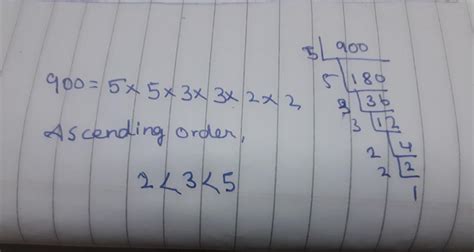 900 = 5 × 5 × 3 × 3 × 2 × 2
Ascending order,
2 < 3 < 5
5 900
5 180
3 36
3 12
2 4
2 2
1